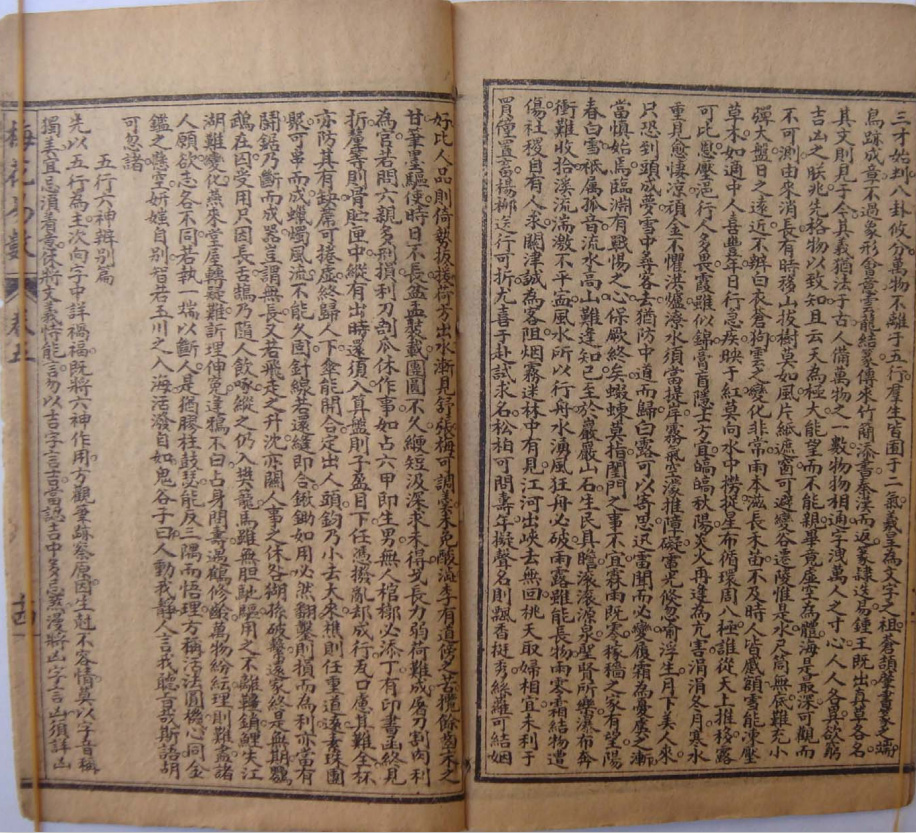 三才始判八卦攸分萬物不離于五行羣生皆囿于二氣羲皇為文字之祖蒼頡肇書篆之端
鳥跡成章不過象形會意雲龍結篆傳來竹簡漆書秦漢而返篆隸迭易鍾王既出真草各名
其文則見于今其義猶法于古人備萬物之一數物物相通字洩萬人之寸心人人各異欲窮
吉凶之朕兆先格物以致知且云天為極大能望而不能親畢竟虛空為體海是最深可觀而
不可測由來消長有時移山拔樹莫如風片紙遮窗可避變谷遷陵惟是水尺筒無底難充小
彈大盤日之遠近不辨白衣蒼狗雲多變化非常雨本滋長禾苗不及時人皆慼額雪能凍壓
草木如適中人喜豐年日行急疾映于紅莫向水中撈捉星布循環周八極誰從天上推移露
可比恩壓浥行人多畏霞雖似錦膏肓隱士方宜皜皜秋陽炎火再逢為亢害涓涓冬月寒水
重見愈悽凉頑金不懼洪爐潦水須當堤岸霧氣空濛推障礙電光倏忽喻浮生月下美人來
只恐到頭成夢雪中尋各去猶防中道而歸白露可以寄思迅雷聞而必變履霜為憂虞之漸
當慎始焉臨淵有戰惕之心保厥終矣蝃蝀莫指閨門之事不宜霖雨既零稼穡之家有望陽
春白雪祇屬孤音流水高山難逢知已至於巖巖山石生民具瞻滾滾源泉聖賢所樂瀑布奔
衝難收拾溪流湍激不平孟風水所以行舟水湧風狂舟必破雨露雖能長物雨零霜結物遭
傷社稷自有人求關津誠為客阻烟霧迷林中有見江河出峽去無回桃夭取婦相宜未利于
買僮置妾楊柳送行可折尤喜于赴試求名松柏可問壽年擬聲名則飄香挺秀絲蘿可結姻
好比人品則倚勢扳援荷方出水漸見舒張梅可調羹未免酸澁李有道傍之苦欖餘齒末之
甘筆墨驅使時日不長盆盂裝載團圓不久綆短汲深求未得戈長力弱荷難成屠刀割肉利
為官若問六親多刑損利刀剖瓜休作事如占六甲即生男無人棺槨必添丁有印書函終見
折麈等則骨肶匣中縱有出時還須入算盤則子盈目下任憑撥亂却成行瓦口慮其難全杯
亦防其有缺席可捲虛終歸人下傘能開合定出人頭鈎乃小去大來樵則任重道遠素珠團
聚可串而成蠟燭風流不能久固針線若還縫即合鍬鋤如用必然翻繫則損而為利亦當有
鬪鋸乃斷而成器豈謂無長又若飛走之升沈亦關人事之休咎猢猻破繫還家終是無期鸚
鵡在因受用只因長舌鵠乃隨人飲啄縱之仍入樊籠馬雖無胆馳驅用之不離韁鎖鯉失江
湖難變化燕來堂屋轉疑難訴理伸寃逢鴉不白占身問壽遇鶴修齡萬物紛紜理則難盡諸
人願欲志各不同若執一端以斷人是猶膠柱鼓瑟能反三隅而悟理方稱活法圓機心同金
鑑之懸空妍媸自別智若玉川之入海活潑自如鬼谷子曰人動我靜人言我聽古哉斯語胡
可忽諸
五行六神辨別篇
先以五行為主次向字中詳禍福既將六神作用方觀筆跡察原因生尅不容情莫以字音稱
獨美宜忌須着意休將文義恃能言勿以吉字言吉當認吉中多忌煞漫將凶字言凶須詳凶
梅花易數 卷五